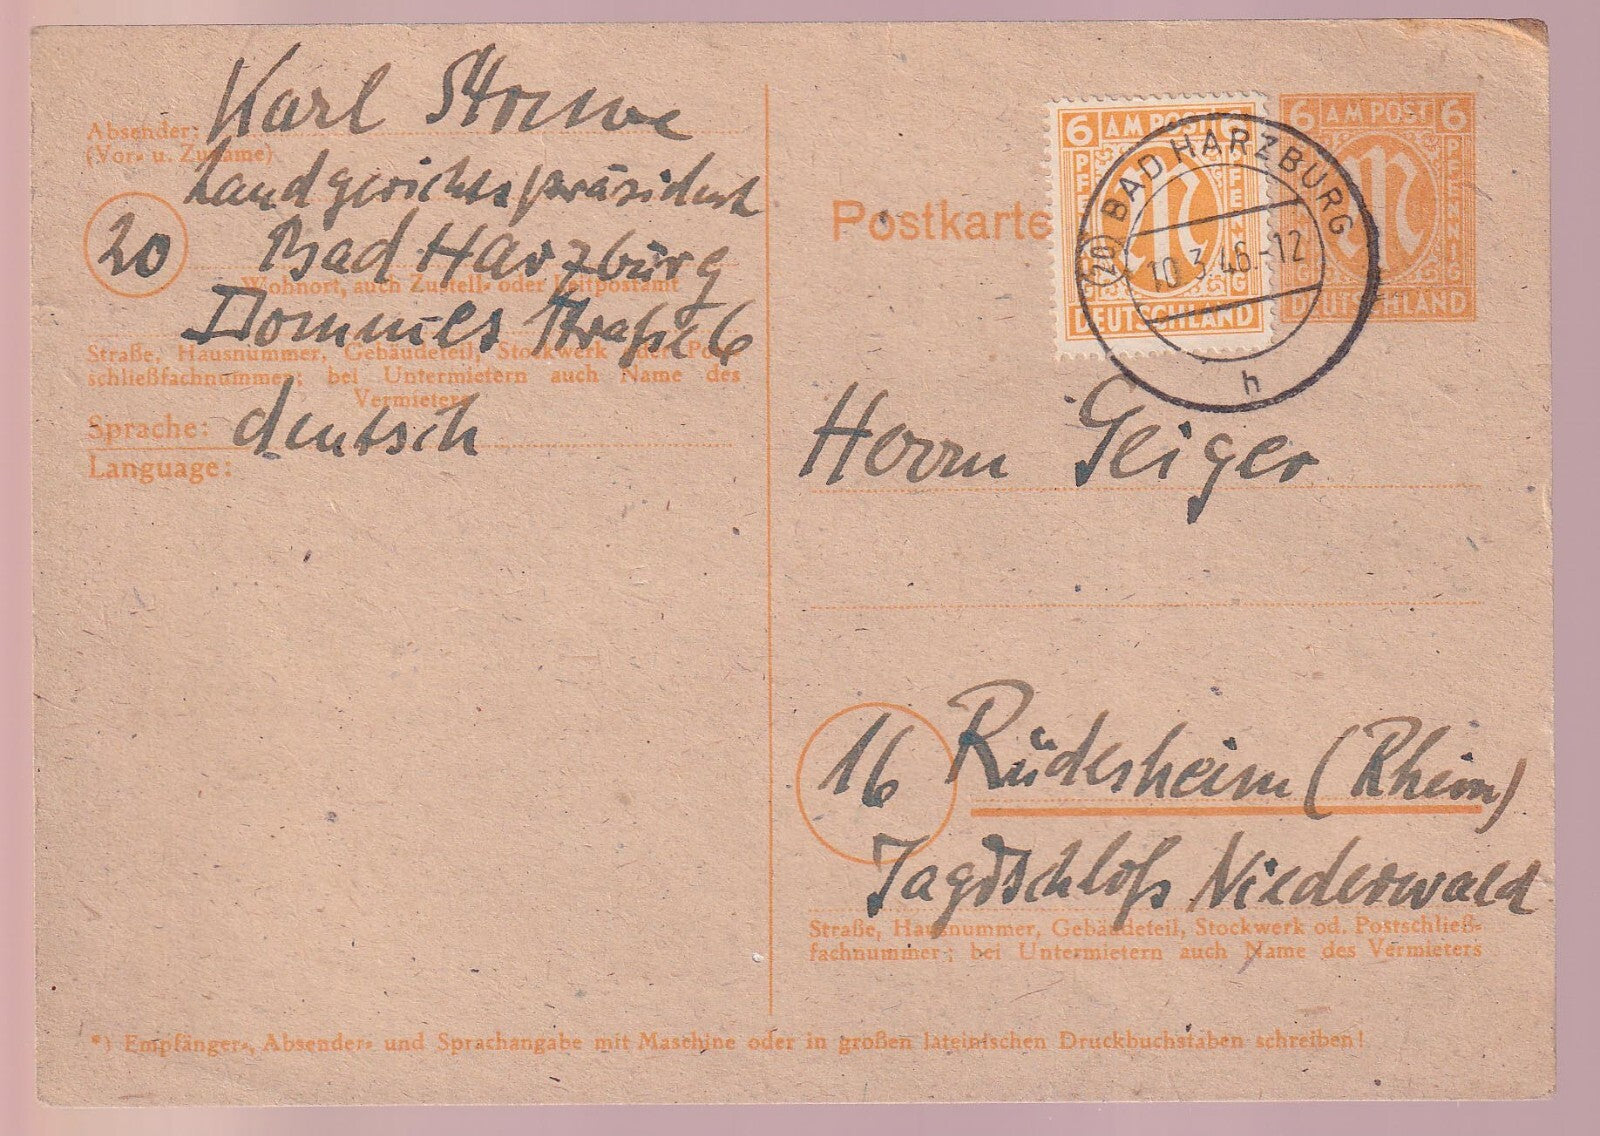 Absender: Karl
(Vor- u. Zuname)
Landgerichtspräsident
20 Bad Harzburg
Wohnort, auch Zustell- oder Leitpostamt
Straße 6
Straße, Hausnummer, Gebäudeteil, Stockwerk oder Post-
schließfachnummer; bei Untermietern auch Name des
Vermieters
Sprache: deutsch
Language:
Postkarte
6 AM POST 6
PFENNIG
DEUTSCHLAND
6 AM POST 6
PFENNIG
DEUTSCHLAND
(20) BAD HARZBURG
10.3.46.-12
h
Herrn Geiger
16 Rüdesheim (Rhein)
Jagdschloß Niederwald
Straße, Hausnummer, Gebäudeteil, Stockwerk od. Postschließ-
fachnummer; bei Untermietern auch Name des Vermieters
*) Empfänger-, Absender- und Sprachangabe mit Maschine oder in großen lateinischen Druckbuchstaben schreiben!